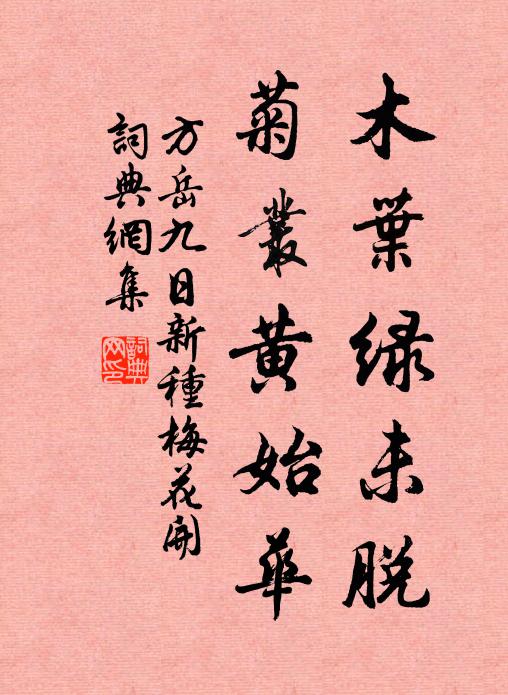 木葉綠未脫
菊叢黄始華
方岳九日新種梅花開
詞典網集
詞典网印